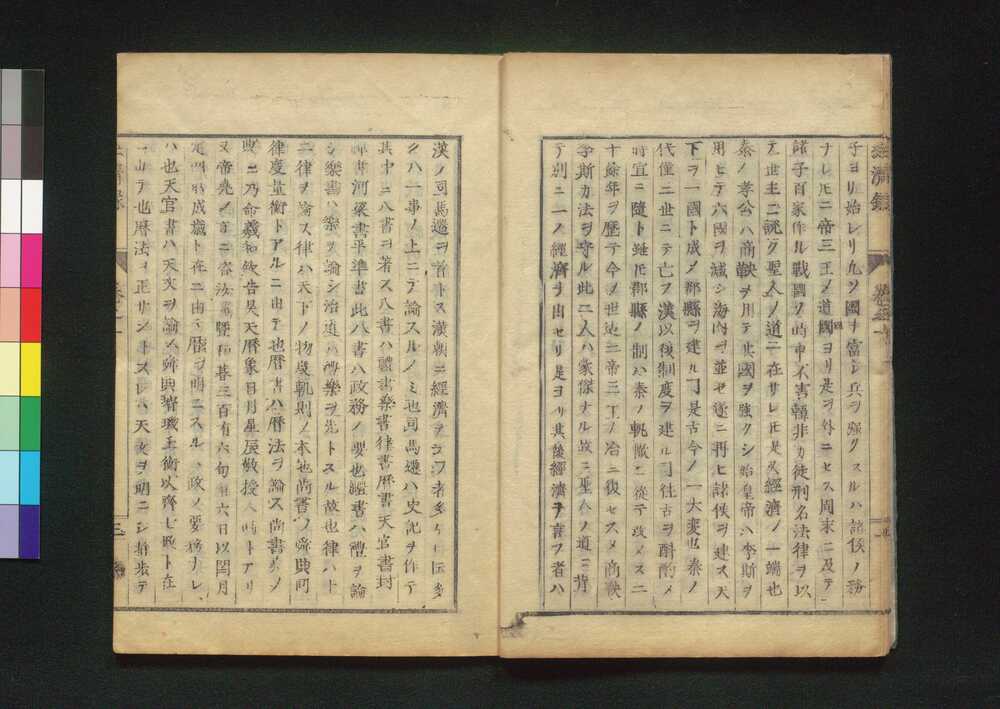 經濟錄
子ヨリ始レリ凡ソ國ヲ富シ兵ヲ強クスルハ諸侯ノ務
ナレ𪜈二帝三王ノ道ヨリ是ヲ外ニセス周末ニ及テ
諸子百家作ル戰國ノ時申不害韓非カ徒刑名法律ヲ以
テ世主ニ說ク聖人ノ道ニ在サレ𪜈是又經濟ノ一端也
秦ノ孝公ハ商鞅ヲ用テ其國ヲ強クシ始皇帝ハ李斯ヲ
用ヒテ六國ヲ滅シ海內ヲ並セ遂ニ再ヒ諸侯ヲ建ス天
下ヲ一國ト成メ郡縣ヲ建ルヿ是古今ノ一大変也秦ノ
代僅二世ニテ亡フ漢以後制度ヲ建ルヿ往古ヲ斟酌メ
時宜ニ隨ト雖𪜈郡縣ノ制ハ秦ノ軌轍ニ從テ改メス二
十餘年ヲ歷テ今ノ世迠二帝三王ノ治ニ復セスメ商鞅
李斯カ法ヲ守ル此二人ハ豪傑ナル故ニ聖人ノ道ニ背
テ別ニ一ノ經濟ヲ由セリ是ヨリ其後經濟ヲ言フ者ハ
漢ノ司馬遷ヲ首トス漢朝ニ經濟ヲ云フ者多ケレ𪜈多
クハ一事ノ上ニテ論スルノミ也司馬遷ハ史記ヲ作テ
其中ニ八書ヲ著ス八書ハ禮書樂書律書曆書天官書封
禪書河渠書平準書此八書ハ政務ノ要也禮書ハ禮ヲ論
シ樂書ハ樂ヲ論シ治道ハ禮樂ヲ先トスル故也律ハ十
二律ヲ論ス律ハ天下ノ物度軌則ノ本也尚書ノ舜典同
律度量衡トアルニ由テ也曆書ハ曆法ヲ論ス尚書ノ
典ニ乃命羲和欽若昊天曆象日月星辰敬授人時トアリ
又帝堯ノ言ニ咨汝羲曁和朞三百有六旬有六日以閏月
定四時成歲ト在ニ由テ曆ヲ明ニスルハ政ノ要務ナレ
ハ也天官書ハ天文ヲ論ス舜典璿璣玉衡以齊七政ト在
ニ由テ也曆法ヲ正サントスレハ天文ヲ明ニシ推步テ
三